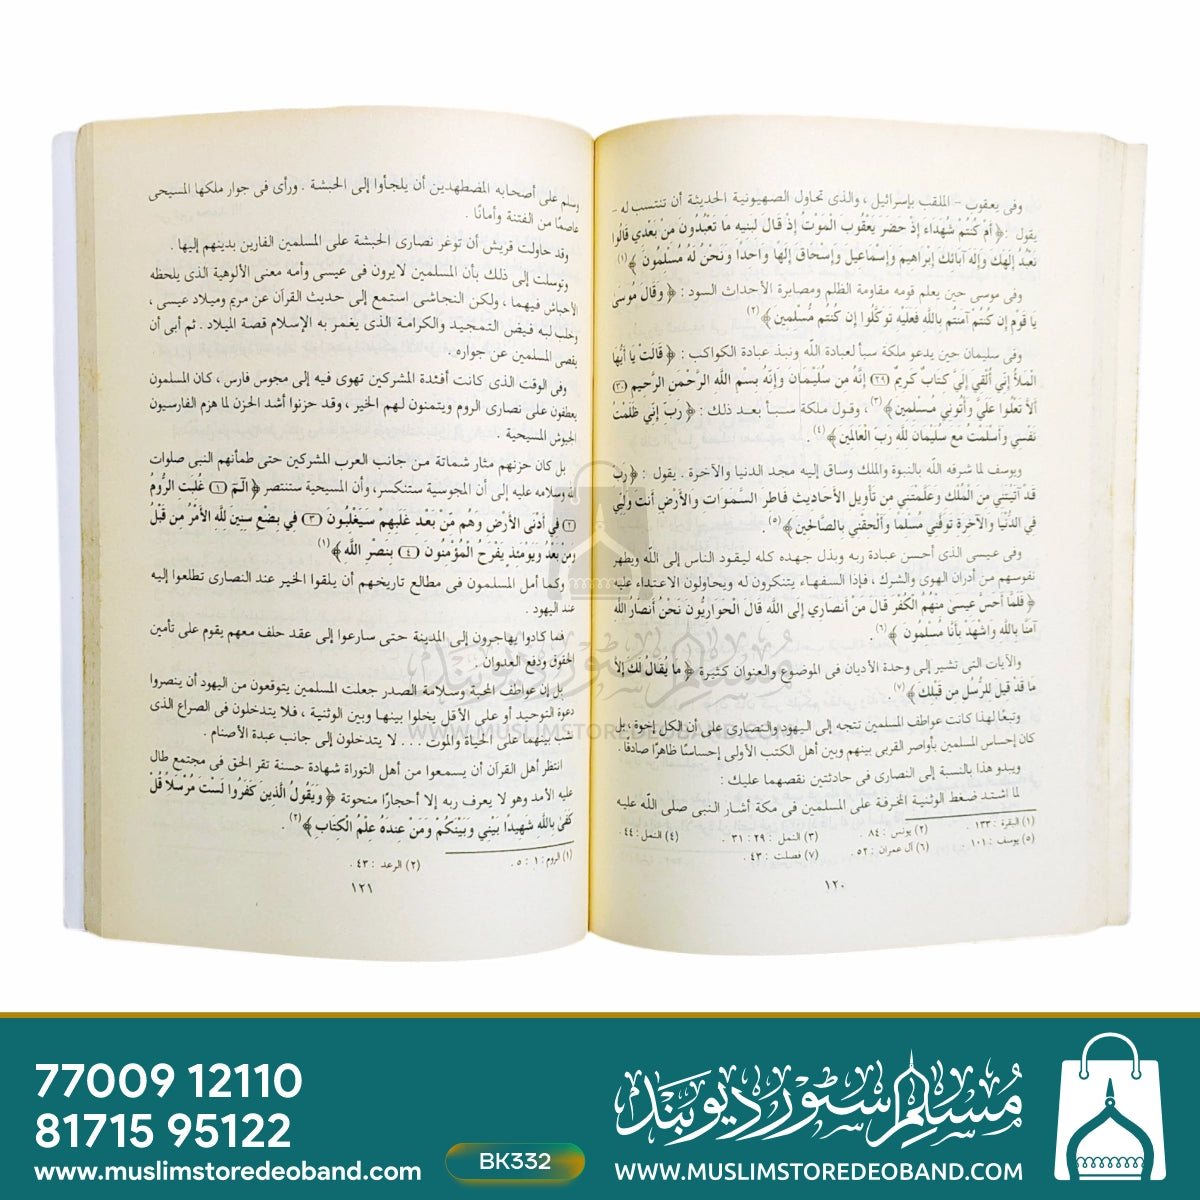 وفى يعقوب - الملقب بإسرائيل ، والذى تحاول الصهيونية الحديثة أن تنتسب له -
يقول : ﴿ أَمْ كُنتُمْ شُهَدَاءَ إِذْ حَضَرَ يَعْقُوبَ الْمَوْتُ إِذْ قَالَ لِبَنِيهِ مَا تَعْبُدُونَ مِنْ بَعْدِي قَالُوا
نَعْبُدُ إِلَهَكَ وَإِلَهَ آبَائِكَ إِبْرَاهِيمَ وَإِسْمَاعِيلَ وَإِسْحَاقَ إِلَهًا وَاحِدًا وَنَحْنُ لَهُ مُسْلِمُونَ ﴾(١)
وفى موسى حين يعلم قومه مقاومة الظلم ومصابرة الأحداث السود : ﴿ وَقَالَ مُوسَى
يَا قَوْمِ إِن كُنتُمْ آمَنتُم بِاللَّهِ فَعَلَيْهِ تَوَكَّلُوا إِن كُنتُم مُّسْلِمِينَ ﴾(٢)
وفى سليمان حين يدعو ملكة سبأ لعبادة الله ونبذ عبادة الكواكب : ﴿ قَالَتْ يَا أَيُّهَا
الْمَلَأُ إِنِّي أُلْقِيَ إِلَيَّ كِتَابٌ كَرِيمٌ (٢٩) إِنَّهُ مِن سُلَيْمَانَ وَإِنَّهُ بِسْمِ اللَّهِ الرَّحْمَنِ الرَّحِيمِ (٣٠)
أَلَّا تَعْلُوا عَلَيَّ وَأْتُونِي مُسْلِمِينَ ﴾(٣) ، وقول ملكة سبأ بعد ذلك : ﴿ رَبِّ إِنِّي ظَلَمْتُ
نَفْسِي وَأَسْلَمْتُ مَعَ سُلَيْمَانَ لِلَّهِ رَبِّ الْعَالَمِينَ ﴾(٤) .
ويوسف لما شرفه الله بالنبوة والملك وساق إليه مجد الدنيا والآخرة . يقول : ﴿ رَبِّ
قَدْ آتَيْتَنِي مِنَ الْمُلْكِ وَعَلَّمْتَنِي مِن تَأْوِيلِ الْأَحَادِيثِ فَاطِرَ السَّمَوَاتِ وَالْأَرْضِ أَنتَ وَلِيِّي
فِي الدُّنْيَا وَالْآخِرَةِ تَوَفَّنِي مُسْلِمًا وَأَلْحِقْنِي بِالصَّالِحِينَ ﴾(٥)
وفى عيسى الذى أحسن عبادة ربه وبذل جهده كله ليقود الناس إلى الله ويطهر
نفوسهم من أدران الهوى والشرك ، فإذا السفهاء يتنكرون له ويحاولون الاعتداء عليه
﴿ فَلَمَّا أَحَسَّ عِيسَى مِنْهُمُ الْكُفْرَ قَالَ مَنْ أَنصَارِي إِلَى اللَّهِ قَالَ الْحَوَارِيُّونَ نَحْنُ أَنصَارُ اللَّهِ
آمَنَّا بِاللَّهِ وَاشْهَدْ بِأَنَّا مُسْلِمُونَ ﴾(٦) .
والآيات التى تشير إلى وحدة الأديان فى الموضوع والعنوان كثيرة ﴿ مَا يُقَالُ لَكَ إِلَّا
مَا قَدْ قِيلَ لِلرُّسُلِ مِن قَبْلِكَ ﴾(٧) .
وتبعًا لهذا كانت عواطف المسلمين تتجه إلى اليهود والنصارى على أن الكل إخوة ، بل
كان إحساس المسلمين بأواصر القربى بينهم وبين أهل الكتب الأولى إحساسًا ظاهرًا صادقًا .
ويبدو هذا بالنسبة إلى النصارى فى حادثتين نقصهما عليك :
لما اشتد ضغط الوثنية المخرفة على المسلمين فى مكة أشار النبى صلى الله عليه
(١) البقرة : ١٣٣ . (٢) يونس : ٨٤ . (٣) النمل : ٢٩ : ٣١ . (٤) النمل : ٤٤ .
(٥) يوسف : ١٠١ . (٦) آل عمران : ٥٢ . (٧) فصلت : ٤٣ .
١٢٠
وسلم على أصحابه المضطهدين أن يلجأوا إلى الحبشة . ورأى فى جوار ملكها المسيحى
عاصمًا من الفتنة وأمانًا .
وقد حاولت قريش أن توغر نصارى الحبشة على المسلمين الفارين بدينهم إليها .
وتوسلت إلى ذلك بأن المسلمين لا يرون فى عيسى وأمه معنى الألوهية الذى يلحظه
الأحباش فيهما ، ولكن النجاشى استمع إلى حديث القرآن عن مريم وميلاد عيسى ،
وخلب لبه فيض التمجيد والكرامة الذى يغمر به الإسلام قصة الميلاد . ثم أبى أن
يقصى المسلمين عن جواره .
وفى الوقت الذى كانت أفئدة المشركين تهوى فيه إلى مجوس فارس ، كان المسلمون
يعطفون على نصارى الروم ويتمنون لهم الخير ، وقد حزنوا أشد الحزن لما هزم الفارسيون
الجيوش المسيحية .
بل كان حزنهم مثار شماتة من جانب العرب المشركين حتى طمأنهم النبى صلوات
الله وسلامه عليه إلى أن المجوسية ستنكسر، وأن المسيحية ستنتصر ﴿ الٓمٓ (١) غُلِبَتِ الرُّومُ
(٢) فِي أَدْنَى الْأَرْضِ وَهُم مِّنْ بَعْدِ غَلَبِهِمْ سَيَغْلِبُونَ (٣) فِي بِضْعِ سِنِينَ لِلَّهِ الْأَمْرُ مِن قَبْلُ
وَمِنْ بَعْدُ وَيَوْمَئِذٍ يَفْرَحُ الْمُؤْمِنُونَ (٤) بِنَصْرِ اللَّهِ ﴾(١)
وكما أمل المسلمون فى مطالع تاريخهم أن يلقوا الخير عند النصارى تطلعوا إليه
عند اليهود .
فما كادوا يهاجرون إلى المدينة حتى سارعوا إلى عقد حلف معهم يقوم على تأمين
الحقوق ودفع العدوان .
بل إن عواطف المحبة وسلامة الصدر جعلت المسلمين يتوقعون من اليهود أن ينصروا
دعوة التوحيد أو على الأقل يخلوا بينها وبين الوثنية ، فلا يتدخلون فى الصراع الذى
نشب بينهما على الحياة والموت . . . لا يتدخلون إلى جانب عبدة الأصنام .
انتظر أهل القرآن أن يسمعوا من أهل التوراة شهادة حسنة تقر الحق فى مجتمع طال
عليه الأمد وهو لا يعرف ربه إلا أحجارًا منحوتة ﴿ وَيَقُولُ الَّذِينَ كَفَرُوا لَسْتَ مُرْسَلًا قُلْ
كَفَى بِاللَّهِ شَهِيدًا بَيْنِي وَبَيْنَكُمْ وَمَنْ عِندَهُ عِلْمُ الْكِتَابِ ﴾(٢) .
(١) الروم : ١ : ٥ . (٢) الرعد : ٤٣ .
١٢١
مسلم سٹور دیوبند
WWW.MUSLIMSTOREDEOBAND.COM
77009 12110
81715 95122
www.muslimstoredeoband.com
BK332
مسلم سٹور دیوبند
WWW.MUSLIMSTOREDEOBAND.COM